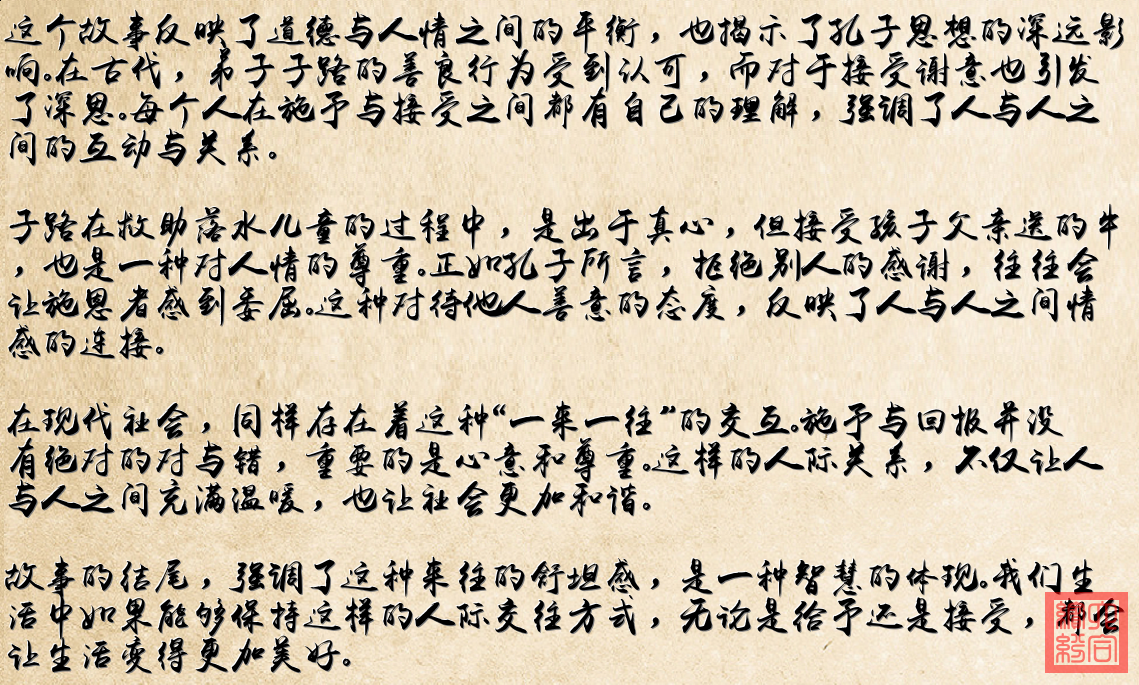 这个故事反映了道德与人情之间的平衡，也揭示了孔子思想的深远影
响。在古代，弟子子路的善良行为受到认可，而对于接受谢意也引发
了深思。每个人在施予与接受之间都有自己的理解，强调了人与人之
间的互动与关系。
子路在救助落水儿童的过程中，是出于真心，但接受孩子父亲送的牛
，也是一种对人情的尊重。正如孔子所言，拒绝别人的感谢，往往会
让施恩者感到委屈。这种对待他人善意的态度，反映了人与人之间情
感的连接。
在现代社会，同样存在着这种“一来一往”的交互。施予与回报并没
有绝对的对与错，重要的是心意和尊重。这样的人际关系，不仅让人
与人之间充满温暖，也让社会更加和谐。
故事的结尾，强调了这种来往的舒坦感，是一种智慧的体现。我们生
活中如果能够保持这样的人际交往方式，无论是给予还是接受，都会
让生活变得更加美好。